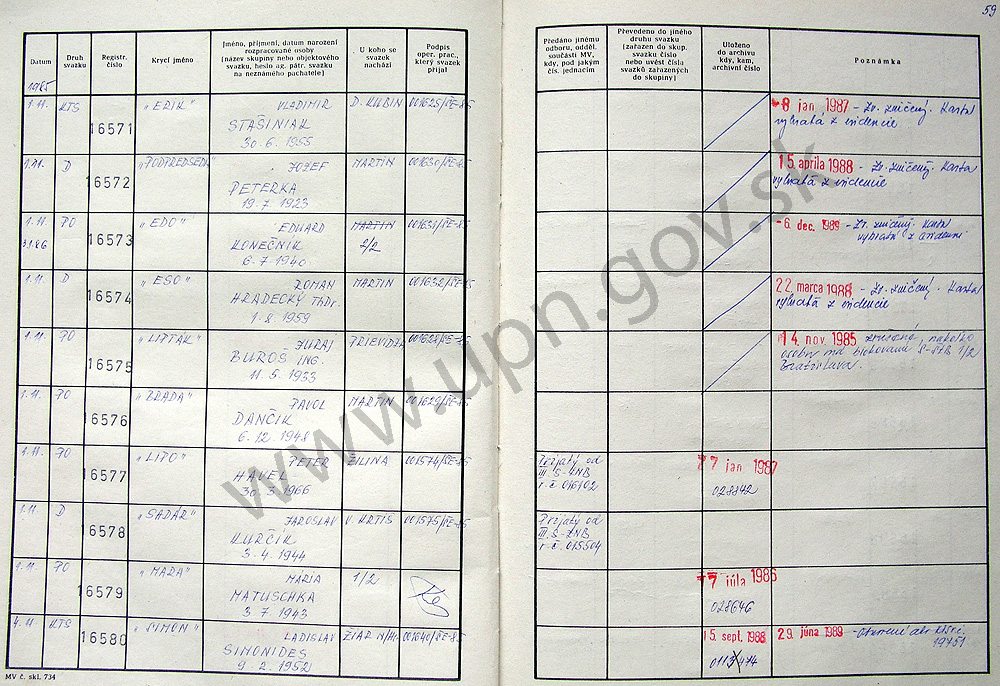 59
Datum
Druh svazku
Registr. číslo
Krycí jméno
Jméno, příjmení, datum narození
rozpracované osoby
(název skupiny nebo objektového
svazku, heslo ag. pátr. svazku
na neznámého pachatele)
U koho se
svazek
nachází
Podpis
oper. prac.,
který svazek
přijal
Předáno jinému
odboru, odděl.
součásti MV,
kdy, pod jakým
čís. jednacím
Převedeno do jiného
druhu svazku
(zařazen do skup.
svazku číslo
nebo uvést čísla
svazků zařazených
do skupiny)
Uloženo
do archivu
kdy, kam,
archivní číslo
Poznámka
1.11. KTS 16571 "ERIK" VLADIMIR D. KUBIN 001625/ŠE-85
STAŠINIAK
30. 6. 1955
8 jan 1987 - Zv. zničený. Karta
vybratá z evidencie
1.11. D 16572 "PODPREDSEDA" JOZEF MARTIN 001630/ŠE-85
PETERKA
19. 7. 1923
15. apríla 1988 - Zv. zničený. Karta
vybratá z evidencie
1.11. PO 16573 "EDO" EDUARD MARTIN 001631/ŠE-85
KONEČNIK 2/2
6. 7. 1940
-6. dec. 1989 - Zv. zničený. Karta
vybratá z evidencie
1.11. D 16574 "ESO" ROMAN MARTIN 001632/ŠE-85
HRADECKÝ ThDr.
1. 8. 1959
22. marca 1988 - Zv. zničený. Karta
vybratá z evidencie
1.11. PO 16575 "LIPTÁK" JURAJ PRIEVIDZA 001628/ŠE-85
BUROŠ ING.
11. 5. 1933
14. nov. 1985 zrušené, nakoľko
osobu má blokovanú S-ŠTB
Bratislava.
1.11. PO 16576 "BRADA" PAVOL MARTIN 001629/ŠE-85
DANČIK
6. 12. 1948
1.11. PO 16577 "LIPO" PETER ŽILINA 001574/ŠE-85
HAVEL
30. 3. 1966
Prijatý od
III. S-ZNB
r. č. 016102
7 jan 1987
028842
1.11. D 16578 "SADÁR" JAROSLAV V. KRTIŠ 001575/ŠE-85
KURČÍK
3. 4. 1944
Prijatý od
III. S-ZNB
r. č. 015504
1.11. PO 16579 "MAĎA" MÁRIA 1/2
MATUSCHKA
3. 7. 1943
7 júla 1986
028646
4.11. KTS 16580 "SIMON" LADISLAV ŽIAR N/Hr. 001640/ŠE-85
SIMONIDES
9. 2. 1952
15. sept. 1988
29. júna 1989 - Otvorené
19751
MV č. skl. 734
www.upn.gov.sk